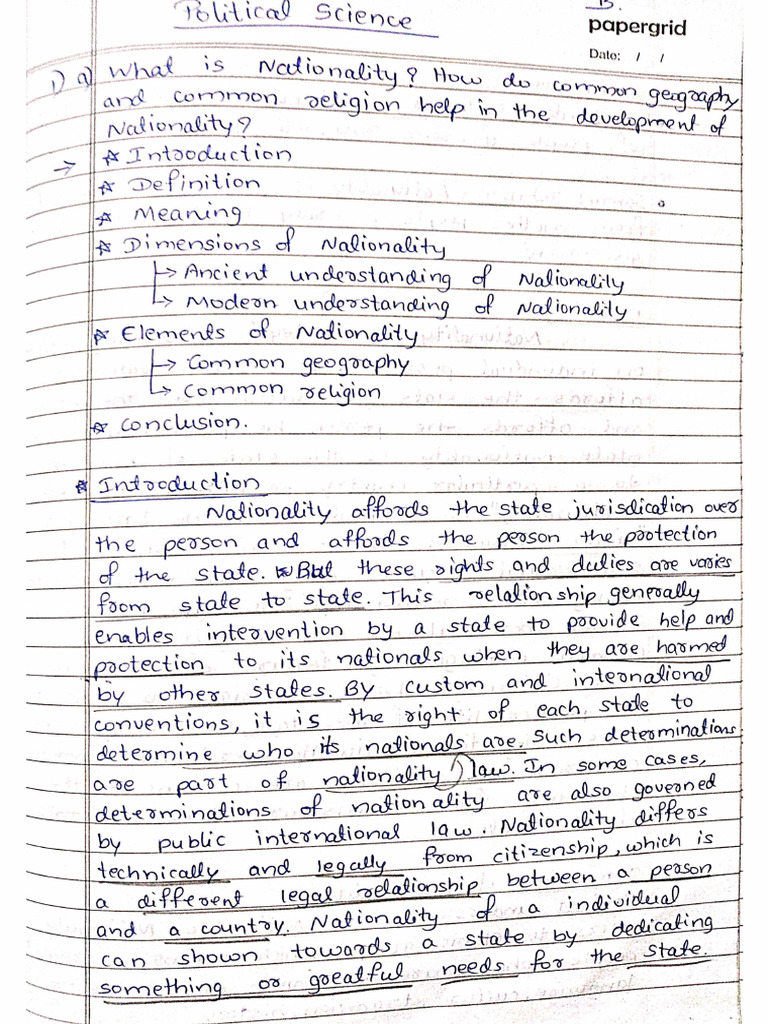 Political Science
B.
papergrid
Date: / /
1) a) What is Nationality? How do common geography
and common religion help in the development of
Nationality?
→ ☆ Introduction
☆ Definition
☆ Meaning
☆ Dimensions of Nationality
↳ Ancient understanding of Nationality
↳ Modern understanding of Nationality
☆ Elements of Nationality
↳ Common geography
↳ Common religion
☆ Conclusion.
☆ Introduction
Nationality affords the state jurisdication over
the person and affords the person the protection
of the state. But these rights and duties are varies
from state to state. This relationship generally
enables intervention by a state to provide help and
protection to its nationals when they are harmed
by other states. By custom and international
conventions, it is the right of each state to
determine who its nationals are. Such determinations
are part of nationality law. In some cases,
determinations of nationality are also governed
by public international law. Nationality differs
technically and legally from citizenship, which is
a different legal relationship between a person
and a country. Nationality of a individual
can shown towards a state by dedicating
something or greatful needs for the state.